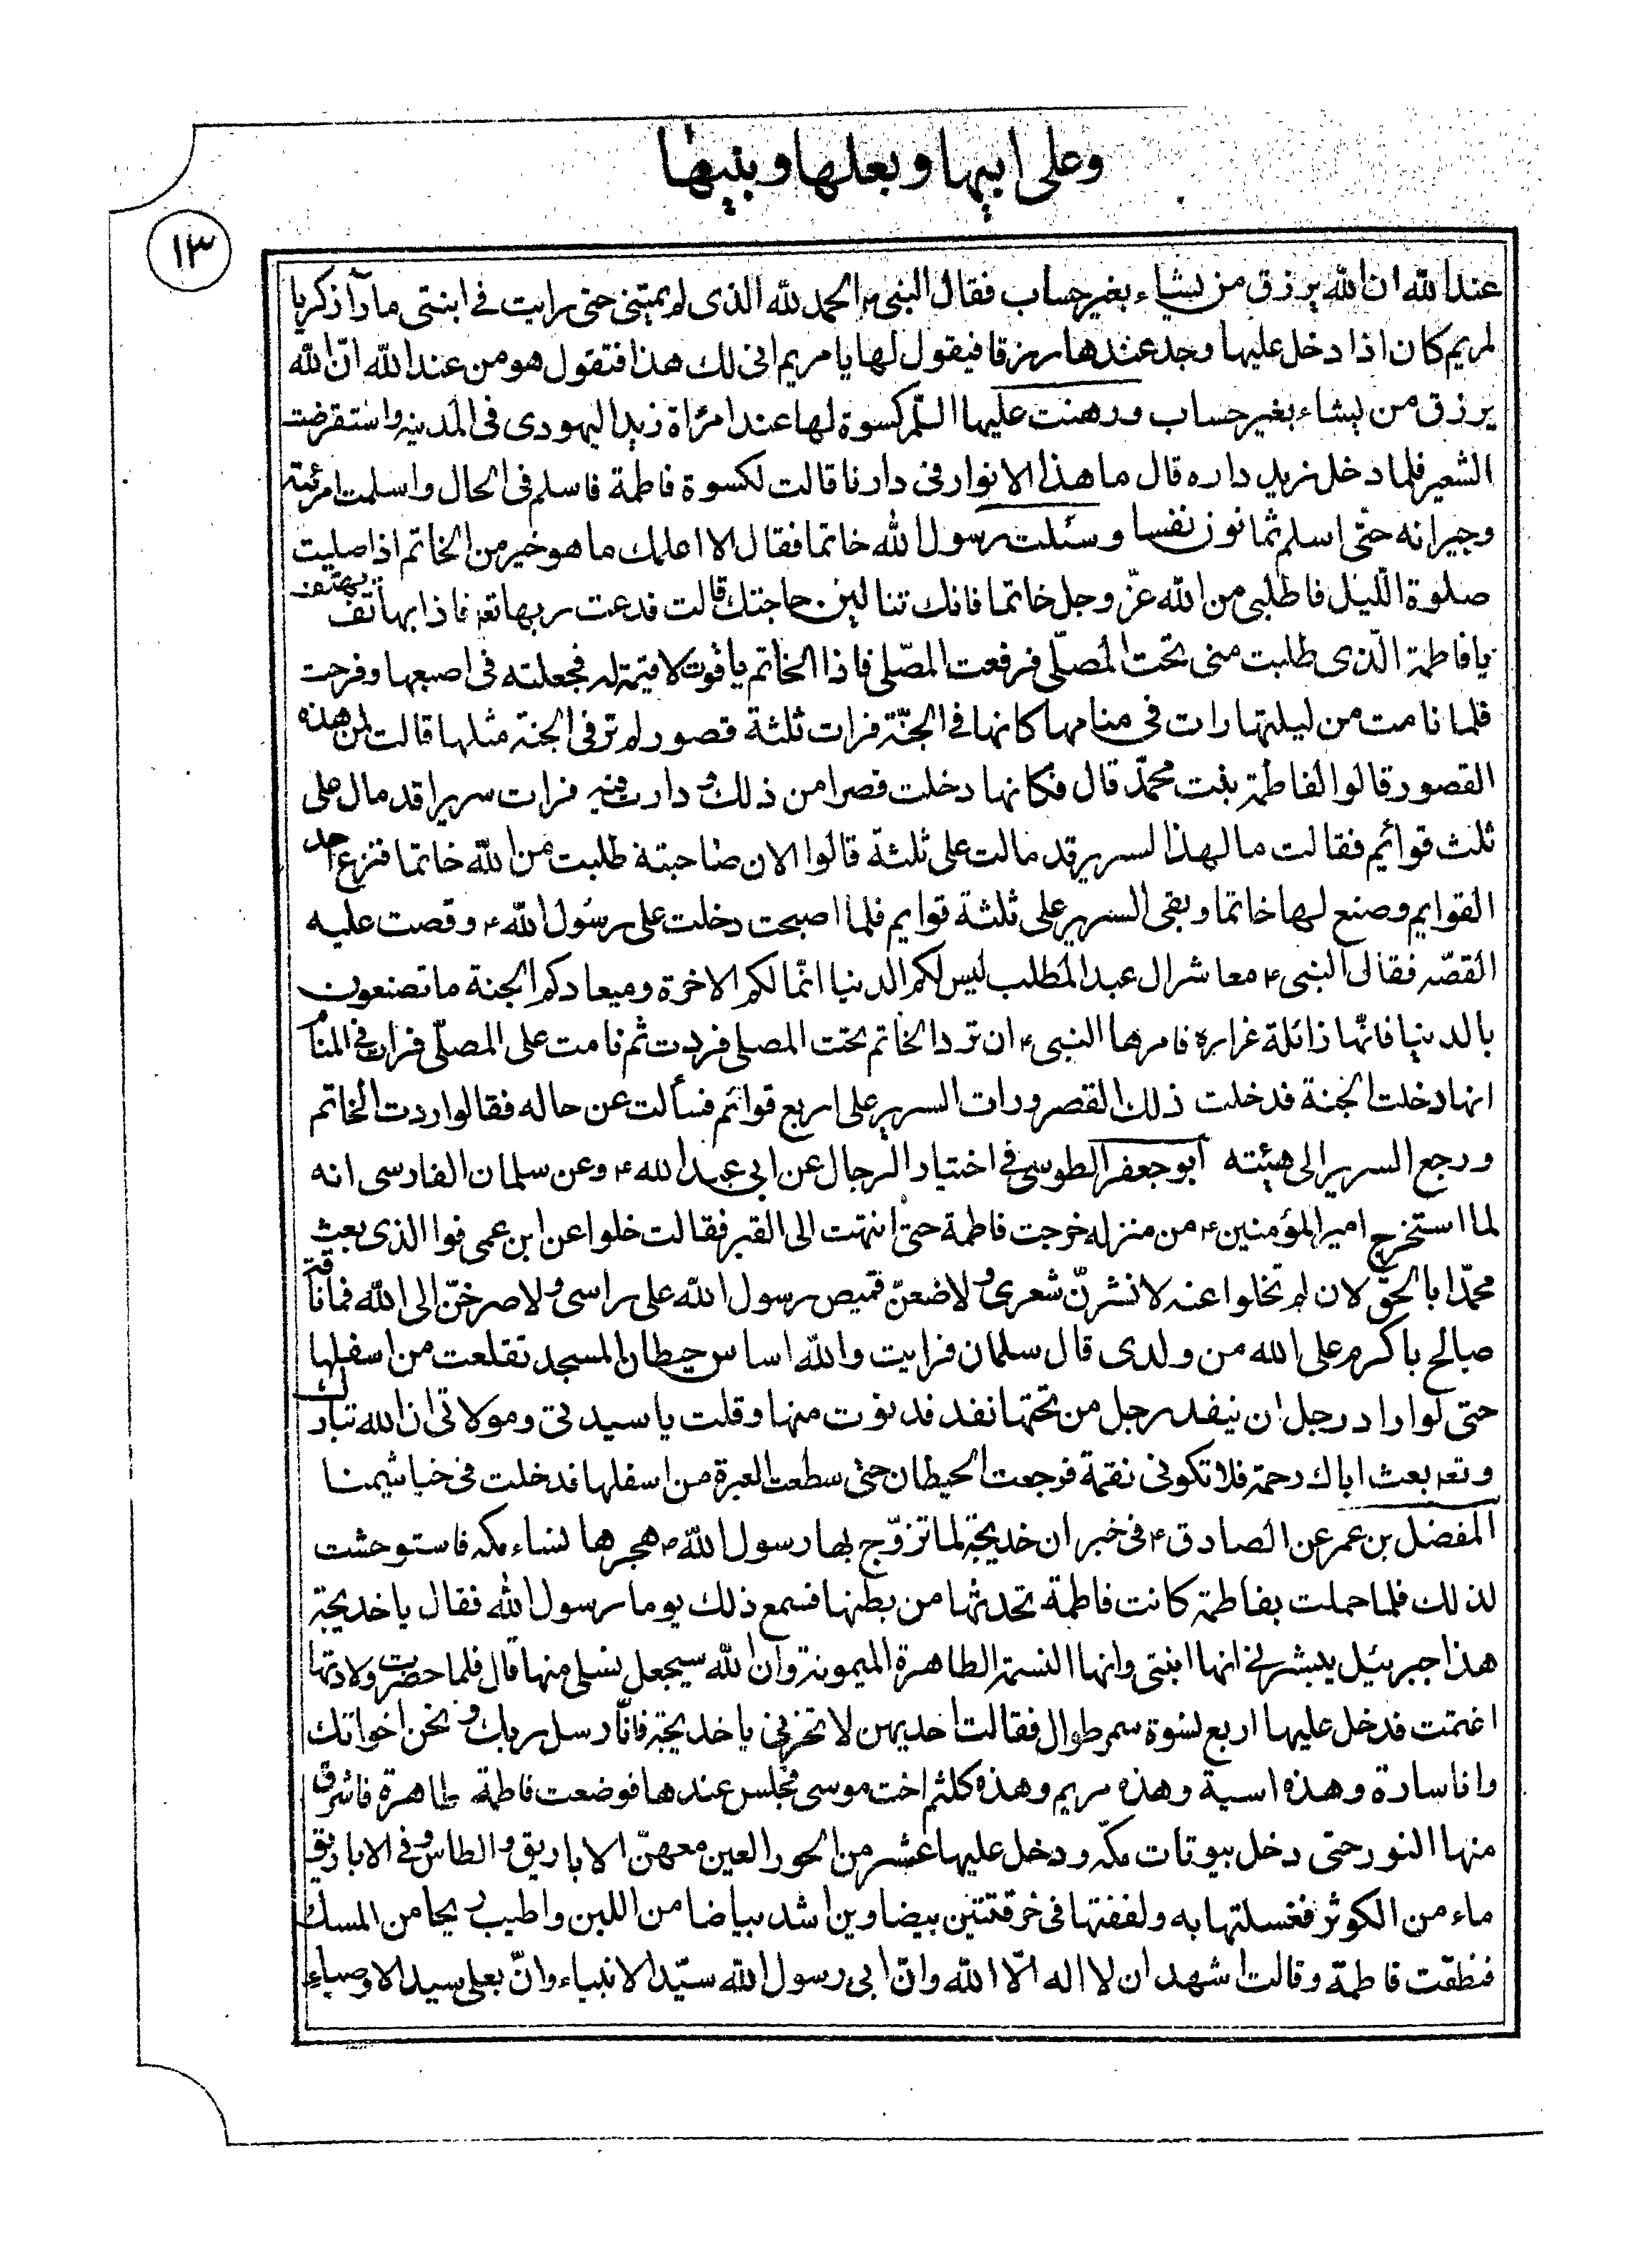 وعلى ابيها و بعلها و بنيها
١٣
عند الله ان الله يرزق من يشاء بغير حساب فقال النبى ص الحمد لله الذى لم يمتنى حتى رايت فى ابنتى ما رآ ذكريا
لمريم كان اذا دخل عليها وجد عندها رزقا فيقول لها يا مريم انى لك هذا فتقول هو من عند الله انّ الله
يرزق من يشاء بغير حساب ورهنت عليها السلم كسوة لها عند امرأة زيد اليهودى فى المدينه واستقرضت
الشعير فلما دخل زيد داره قال ما هذا الانوار فى دارنا قالت لكسوة فاطمة فاسلم فى الحال واسلمت امرئته
وجيرانه حتّى اسلم ثمانون نفسا وسئلت رسول الله خاتما فقال لا اعلمك ما هو خير من الخاتم اذا صليت
صلوة اللّيل فاطلبى من الله عزّ وجل خاتما فانك تنالين حاجتك قالت فدعت ربها تعه فاذا بهاتف يهتف
يا فاطمة الّذى طلبت منى تحت المصلّى فرفعت المصّلى فاذا الخاتم ياقوت لا قيمة له فجعلته فى اصبعها وفرحت
فلما نامت من ليلتها رات فى منامها كانها فى الجنّة فرات ثلثة قصور لم تر فى الجنة مثلها قالت لمن هذه
القصور قالوا لفاطمة بنت محمّد قال فكانها دخلت قصرا من ذلك و دارت فيه فرات سريرا قد مال على
ثلث قوائم فقالت ما لهذا لسرير قد مالت على ثلثة قالوا الان صاحبتة طلبت من الله خاتما فنزع احد
القوايم وصنع لها خاتما وبقى السرير على ثلثة قوايم فلما اصبحت دخلت على رسول الله ص وقصت عليه
القصّه فقال النبى ص معاشر ال عبد المطلب ليس لكم الدنيا انّما لكم الاخرة وميعادكم الجنة ما تصنعون
بالدنيا فانّها زائلة غراره فامرها النبى ص ان ترد الخاتم تحت المصلى فردت ثم نامت على المصلّى فرات فى المنام
انها دخلت الجنة فدخلت ذلك القصر ورات السرير على اربع قوائم فسألت عن حاله فقالوا ردت الخاتم
ورجع السرير الى هيئته ابو جعفر الطوسى فى اختيار الرجال عن ابى عبد الله ع وعن سلمان الفارسى انه
لما استخرج امير المؤمنين ع من منزله خرجت فاطمة حتى انتهت الى القبر فقالت خلوا عن ابن عمى فوا الذى بعث
محمّدا بالحق لان لم تخلوا عنه لانشرنّ شعرى و لاضعنّ قميص رسول الله على راسى و لاصرخنّ الى الله فما ناقة
صالح باكرم على الله من ولدى قال سلمان فرايت والله اساس حيطان المسجد تقلعت من اسفلها
حتى لو اراد رجل ان ينفد رجل من تحتها نفد فدنوت منها وقلت يا سيدتى ومولاتى ان الله تبارك
وتعه بعث اباك رحمة فلا تكونى نقمة فرجعت الحيطان حتى سطعت العبرة من اسفلها فدخلت فى خياشيمنا
المفضل بن عمر عن الصادق ع فى خبر ان خديجة لما تزوّج بها رسول الله ص هجرها نساء مكه فاستوحشت
لذلك فلما حملت بفاطمة كانت فاطمة تحدثها من بطنها فسمع ذلك يوما رسول الله فقال يا خديجة
هذا جبرئيل يبشرنى انها ابنتى وانها النسمة الطاهرة الميمونة وان الله سيجعل نسلى منها قال فلما حضرت ولادتها
اغتمت فدخل عليها اربع نسوة سمر طوال فقالت احديهن لا تحزنى يا خديجة فانّا رسل ربك و نحن اخواتك
وانا سارة وهذه اسية وهذه مريم وهذه كلثم اخت موسى فجلس عندها فوضعت فاطمة طاهرة فاشرق
منها النور حتى دخل بيوتات مكّه ودخل عليها عشر من الحور العين معهنّ الاباريق و الطاس و فى الاباريق
ماء من الكوثر فغسلتها به ولففتها فى خرقتتين بيضاوين اشد بياضا من اللبن واطيب ريحا من المسك
فنطقت فاطمة وقالت اشهد ان لا اله الّا الله وانّ ابى رسول الله سيّد الانبياء وانّ بعلى سيد الاوصياء